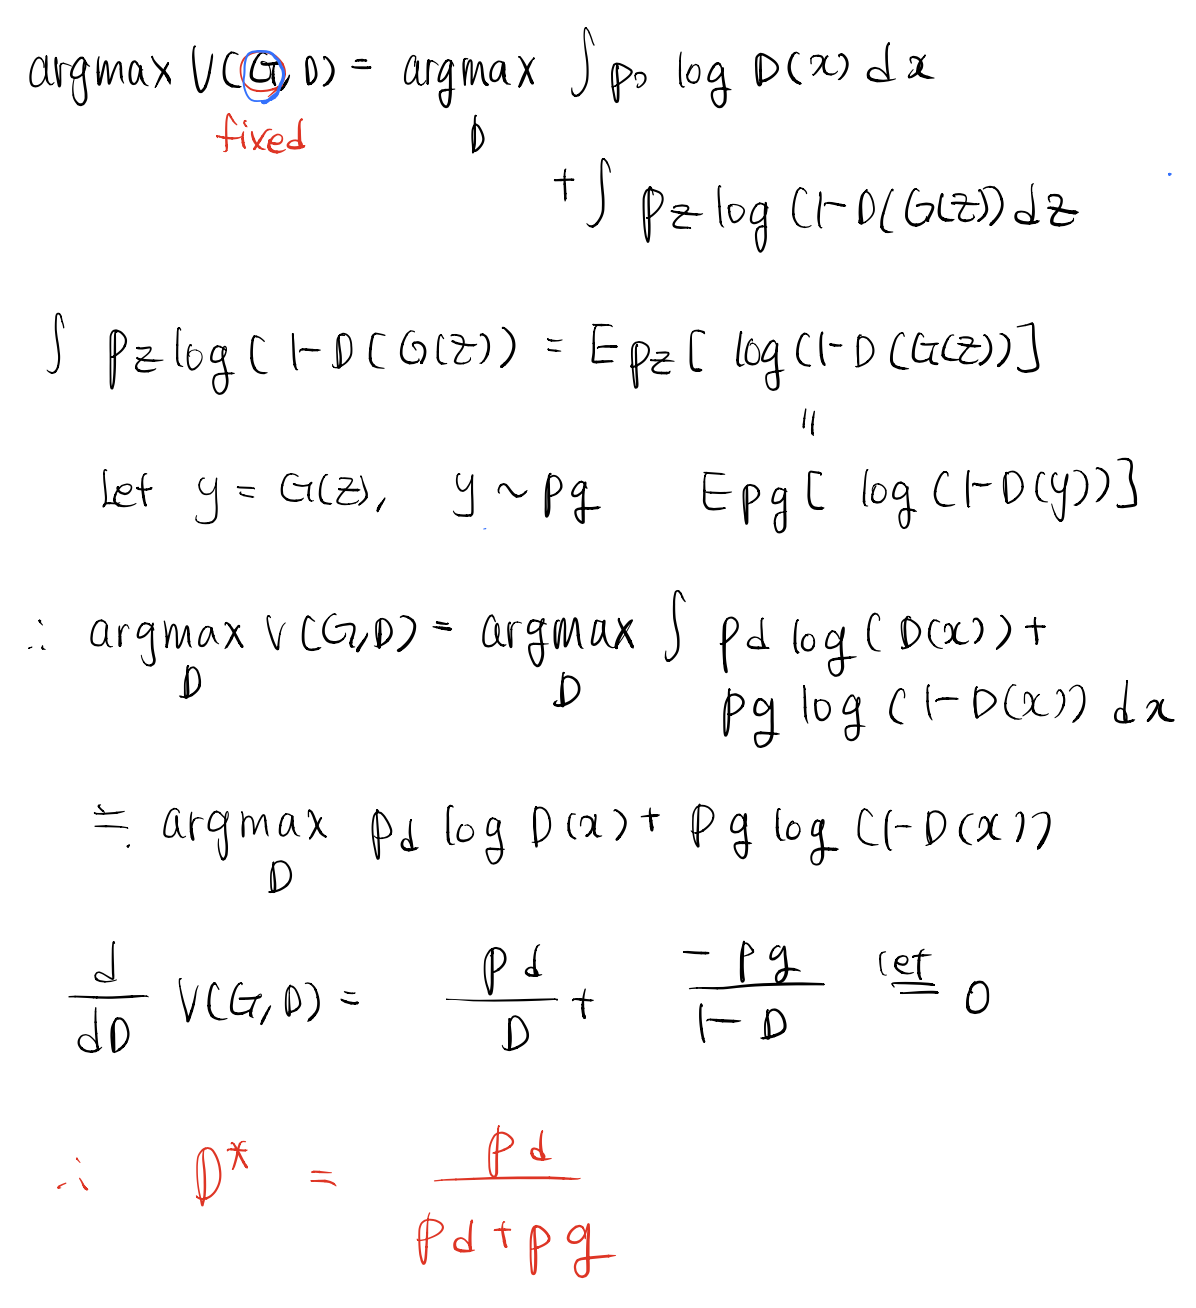 argmax V(G, D) = argmax ∫ p_D log D(x) dx
fixed D
+ ∫ p_z log (1-D(G(z)) dz
∫ p_z log (1-D(G(z)) = E p_z [ log(1-D(G(z))]
=
Let y = G(z), y ~ pg E pg [ log (1-D(y))]
∴ argmax V(G,D) = argmax ∫ pd log(D(x)) +
D D pg log (1-D(x)) dx
≒ argmax pd log D(x) + pg log (1-D(x))
D
d/dD V(G,D) = pd/D + -pg/1-D let = 0
∴ D* = pd/pd+pg